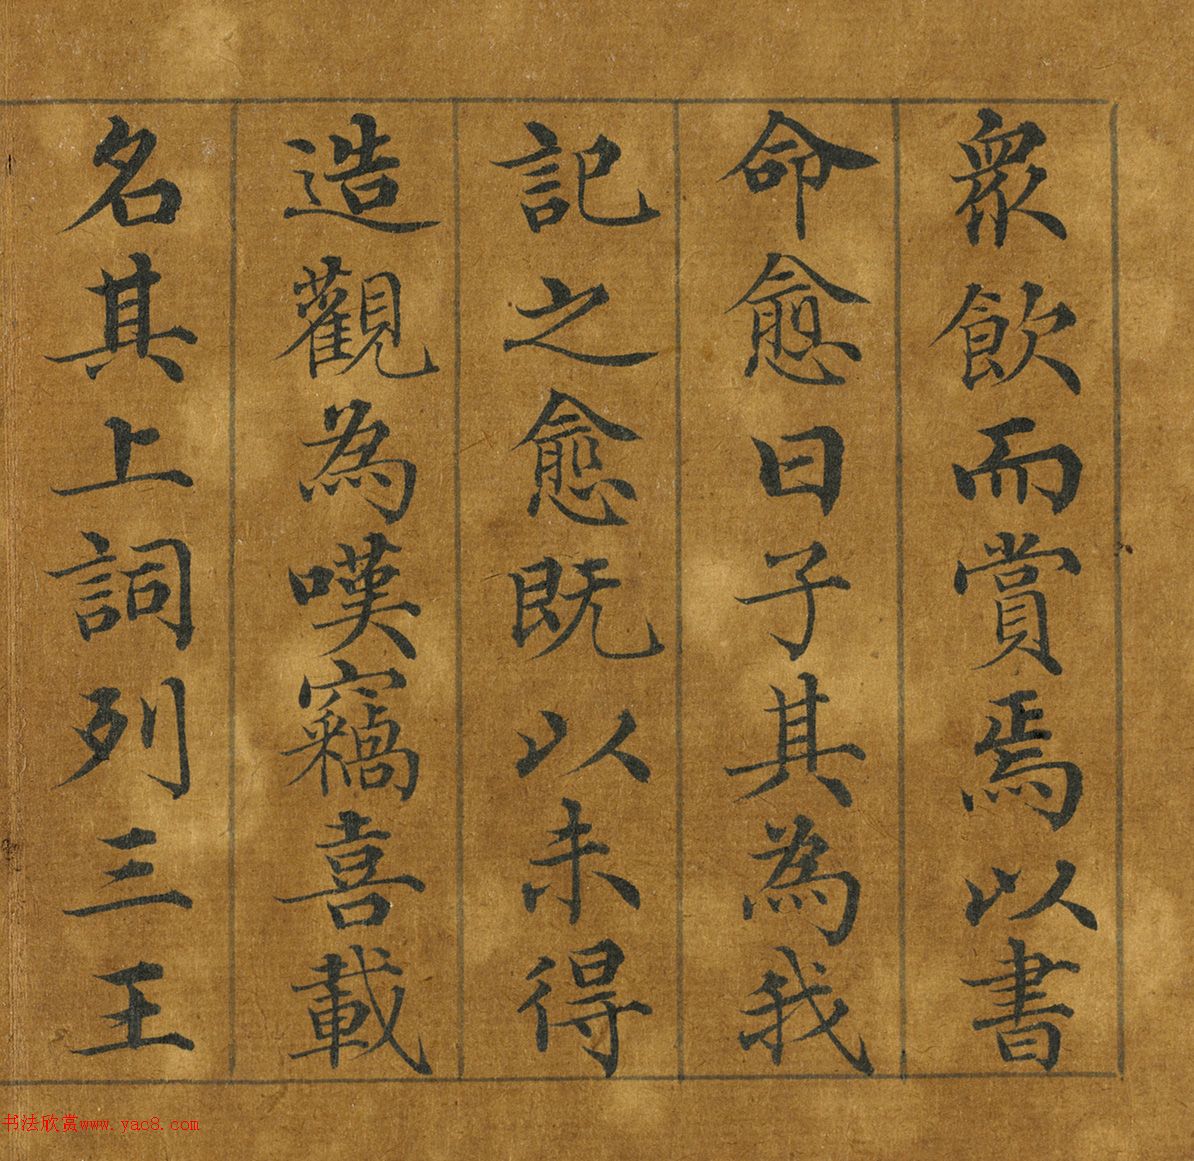 衆飲而賞焉以書
命愈曰子其為我
記之愈既以未得
造觀為嘆竊喜載
名其上詞列三王
书法欣赏www.yac8.com